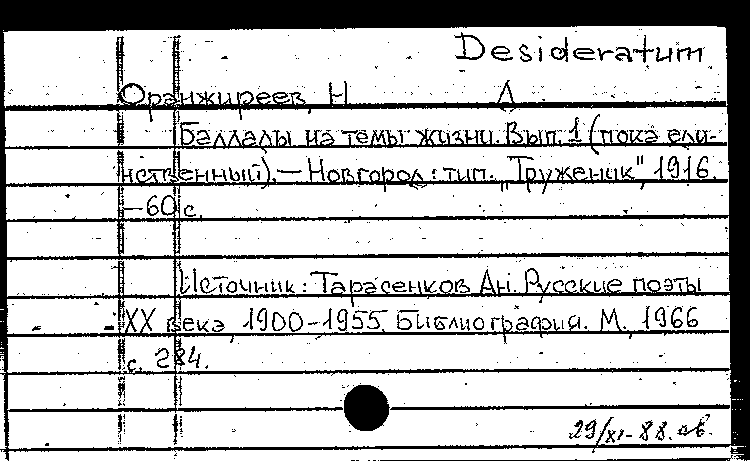 Desideratum
Оранжиреев, Н Л
Баллады на темы жизни. Вып. 1 (пока еди-
нственный). — Новгород: тип. „Труженик", 1916.
— 60 с.
Источник: Тарасенков Ан. Русские поэты
XX века, 1900–1955. Библиография. М., 1966
с. 284.
29/XI-88. ав.